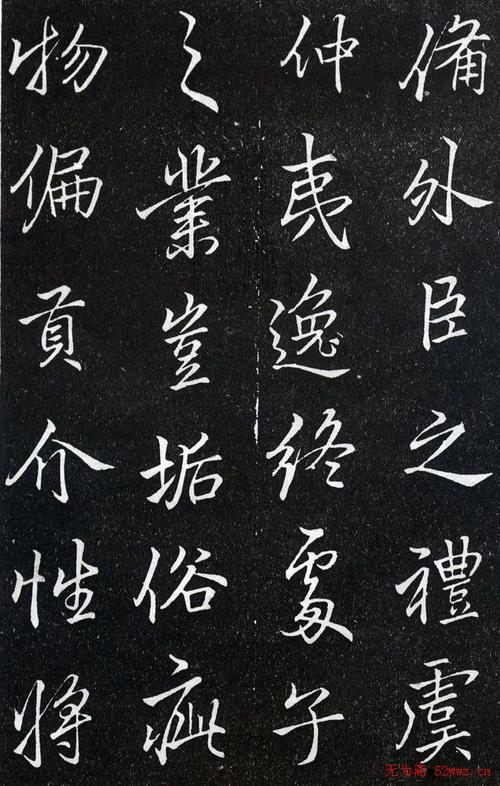 備外臣之禮虞
仲夷逸終處子
之業豈垢俗疵
物偏貢介性將
无为斋 52wwz.cn